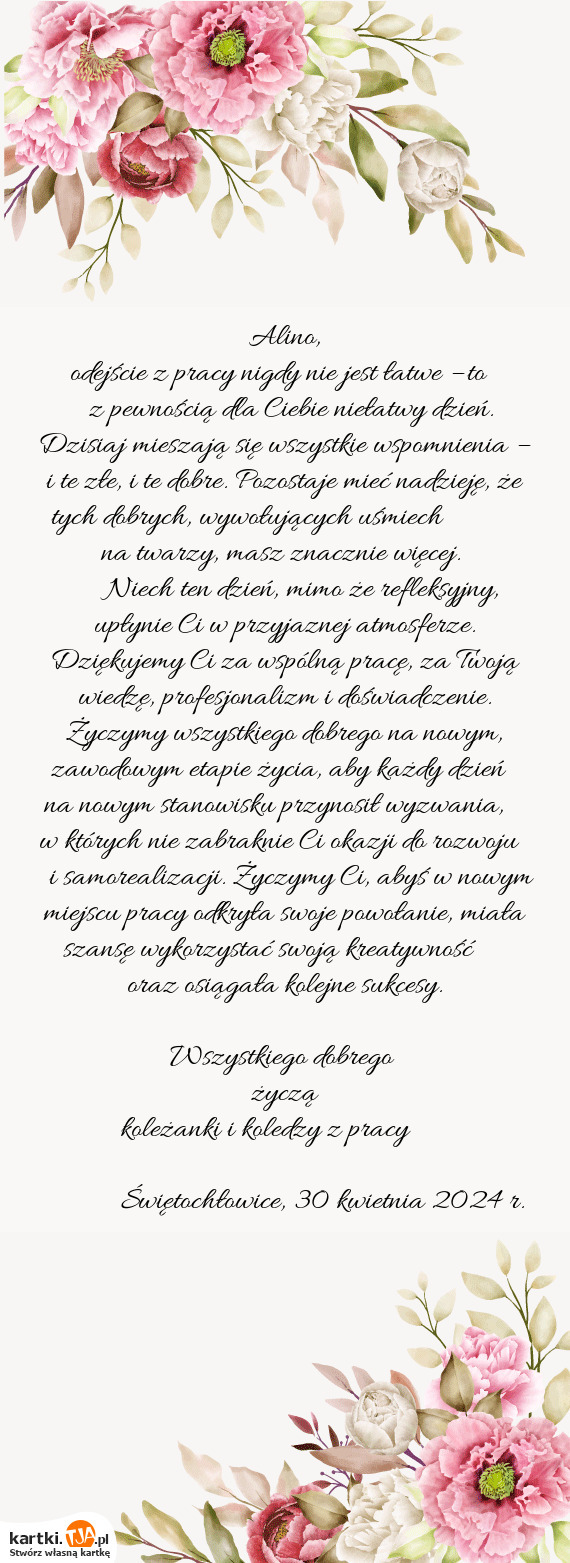 Alino,
odejście z pracy nigdy nie jest łatwe – to
z pewnością dla Ciebie niełatwy dzień.
Dzisiaj mieszają się wszystkie wspomnienia –
i te złe, i te dobre. Pozostaje mieć nadzieję, że
tych dobrych, wywołujących uśmiech
na twarzy, masz znacznie więcej.
Niech ten dzień, mimo że refleksyjny,
upłynie Ci w przyjaznej atmosferze.
Dziękujemy Ci za wspólną pracę, za Twoją
wiedzę, profesjonalizm i doświadczenie.
Życzymy wszystkiego dobrego na nowym,
zawodowym etapie życia, aby każdy dzień
na nowym stanowisku przynosił wyzwania,
w których nie zabraknie Ci okazji do rozwoju
i samorealizacji. Życzymy Ci, abyś w nowym
miejscu pracy odkryła swoje powołanie, miała
szansę wykorzystać swoją kreatywność
oraz osiągała kolejne sukcesy.
Wszystkiego dobrego
życzą
koleżanki i koledzy z pracy
Świętochłowice, 30 kwietnia 2024 r.
kartki.TJA.pl
Stwórz własną kartkę